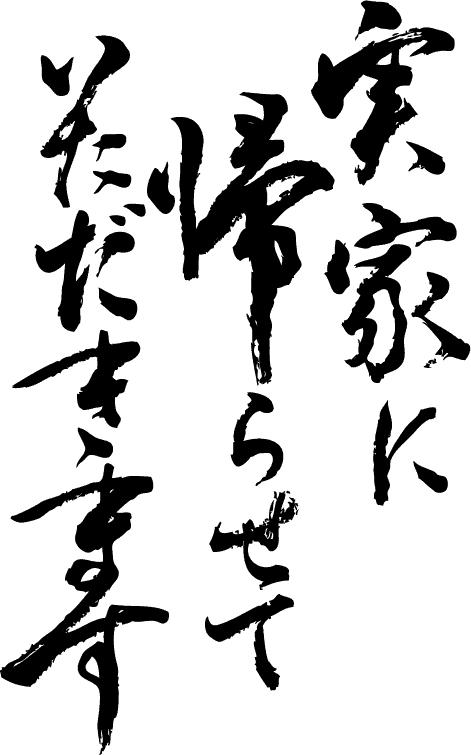 実家に
帰らせて
いただきます